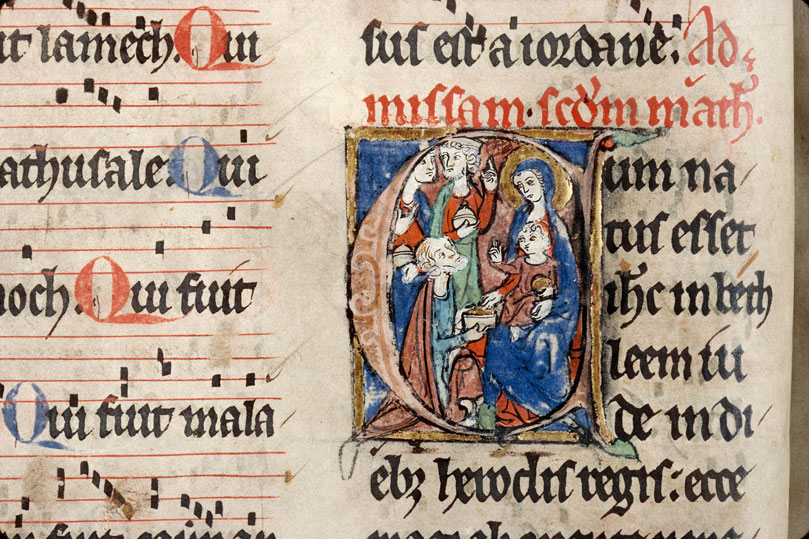 it lamech. Qui
athusale. Qui
noch. Qui fuit
Qui fuit mala
sus est a iordane. Ad
missam. scdm math.
Cum na
tus esset
ihc in beth
leem iu
de in di
ebꝫ herodis regis: ecce